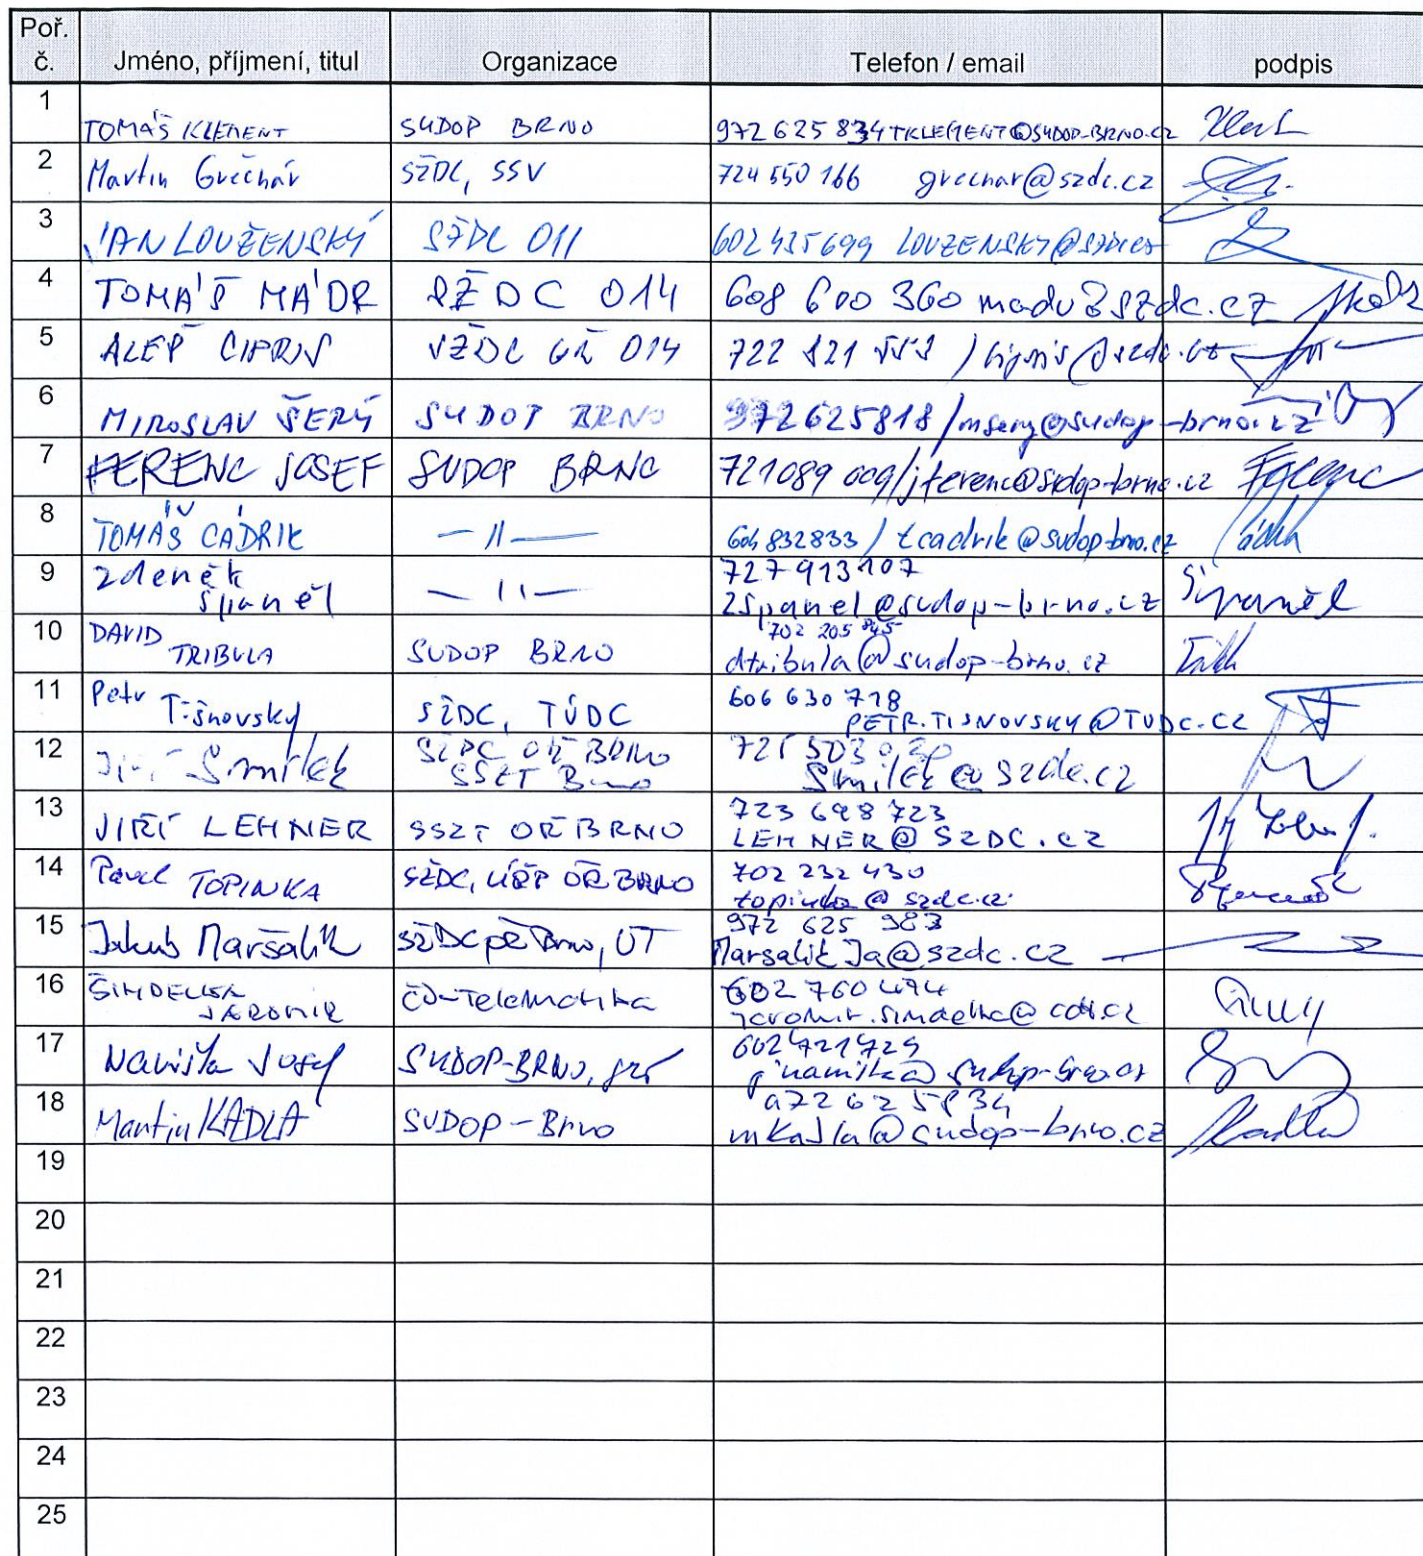 Poř. č. Jméno, příjmení, titul Organizace Telefon / email podpis
1 TOMÁŠ KLEMENT SUDOP BRNO 972 625 834 TKLEMENT@SUDOP-BRNO.CZ
2 Martin Grečnár SŽDC, SSV 724 550 166 grecnar@szdc.cz
3 JAN LOUŽENSKÝ SŽDC O11 602 435 699 LOUZENSKY@SZDC.CZ
4 TOMÁŠ MÁDR SŽDC O14 608 600 360 madr@szdc.cz
5 ALEŠ CIPRIS SŽDC GŘ O14 722 821 /cipris@szdc.cz
6 MIROSLAV ŠERÝ SUDOP BRNO 972625818/msery@sudop-brno.cz
7 FERENC JOSEF SUDOP BRNO 721089 009/jferenc@sudop-brno.cz Ferenc
8 TOMÁŠ CÁDRIK —||— 604 832833 / tcadrik@sudop-brno.cz
9 Zdeněk
Španěl —||— 727913107
zspanel@sudop-brno.cz Španěl
10 DAVID
TRIBULA SUDOP BRNO 702 205 845
dtribula@sudop-brno.cz
11 Petr Tišnovský SŽDC, TÚDC 606 630 718
PETR.TISNOVSKY@TUDC.CZ
12 Jiří Smrček SŽDC OŘ BRNO
SSZT Brno 725 503
@szdc.cz
13 JIŘÍ LEHNER SSZT OŘ BRNO 723 698 723
LEHNER@SZDC.CZ
14 Pavel TOPINKA SŽDC, OŘ BRNO 702 232 430
topinka@szdc.cz
15 Jakub Maršálik SŽDC OŘ Brno, ÚT 972 625 983
MarsalikJa@szdc.cz
16 ŠIMDELKA
JAROMÍR ČD-Telematika 602 760 494
jaromir.simdelka@cdt.cz
17 Josef SUDOP-BRNO, 602721729
@sudop-brno.cz
18 Martin KADLA SUDOP-Brno 972 62 5834
mkadla@sudop-brno.cz Kadla
19
20
21
22
23
24
25